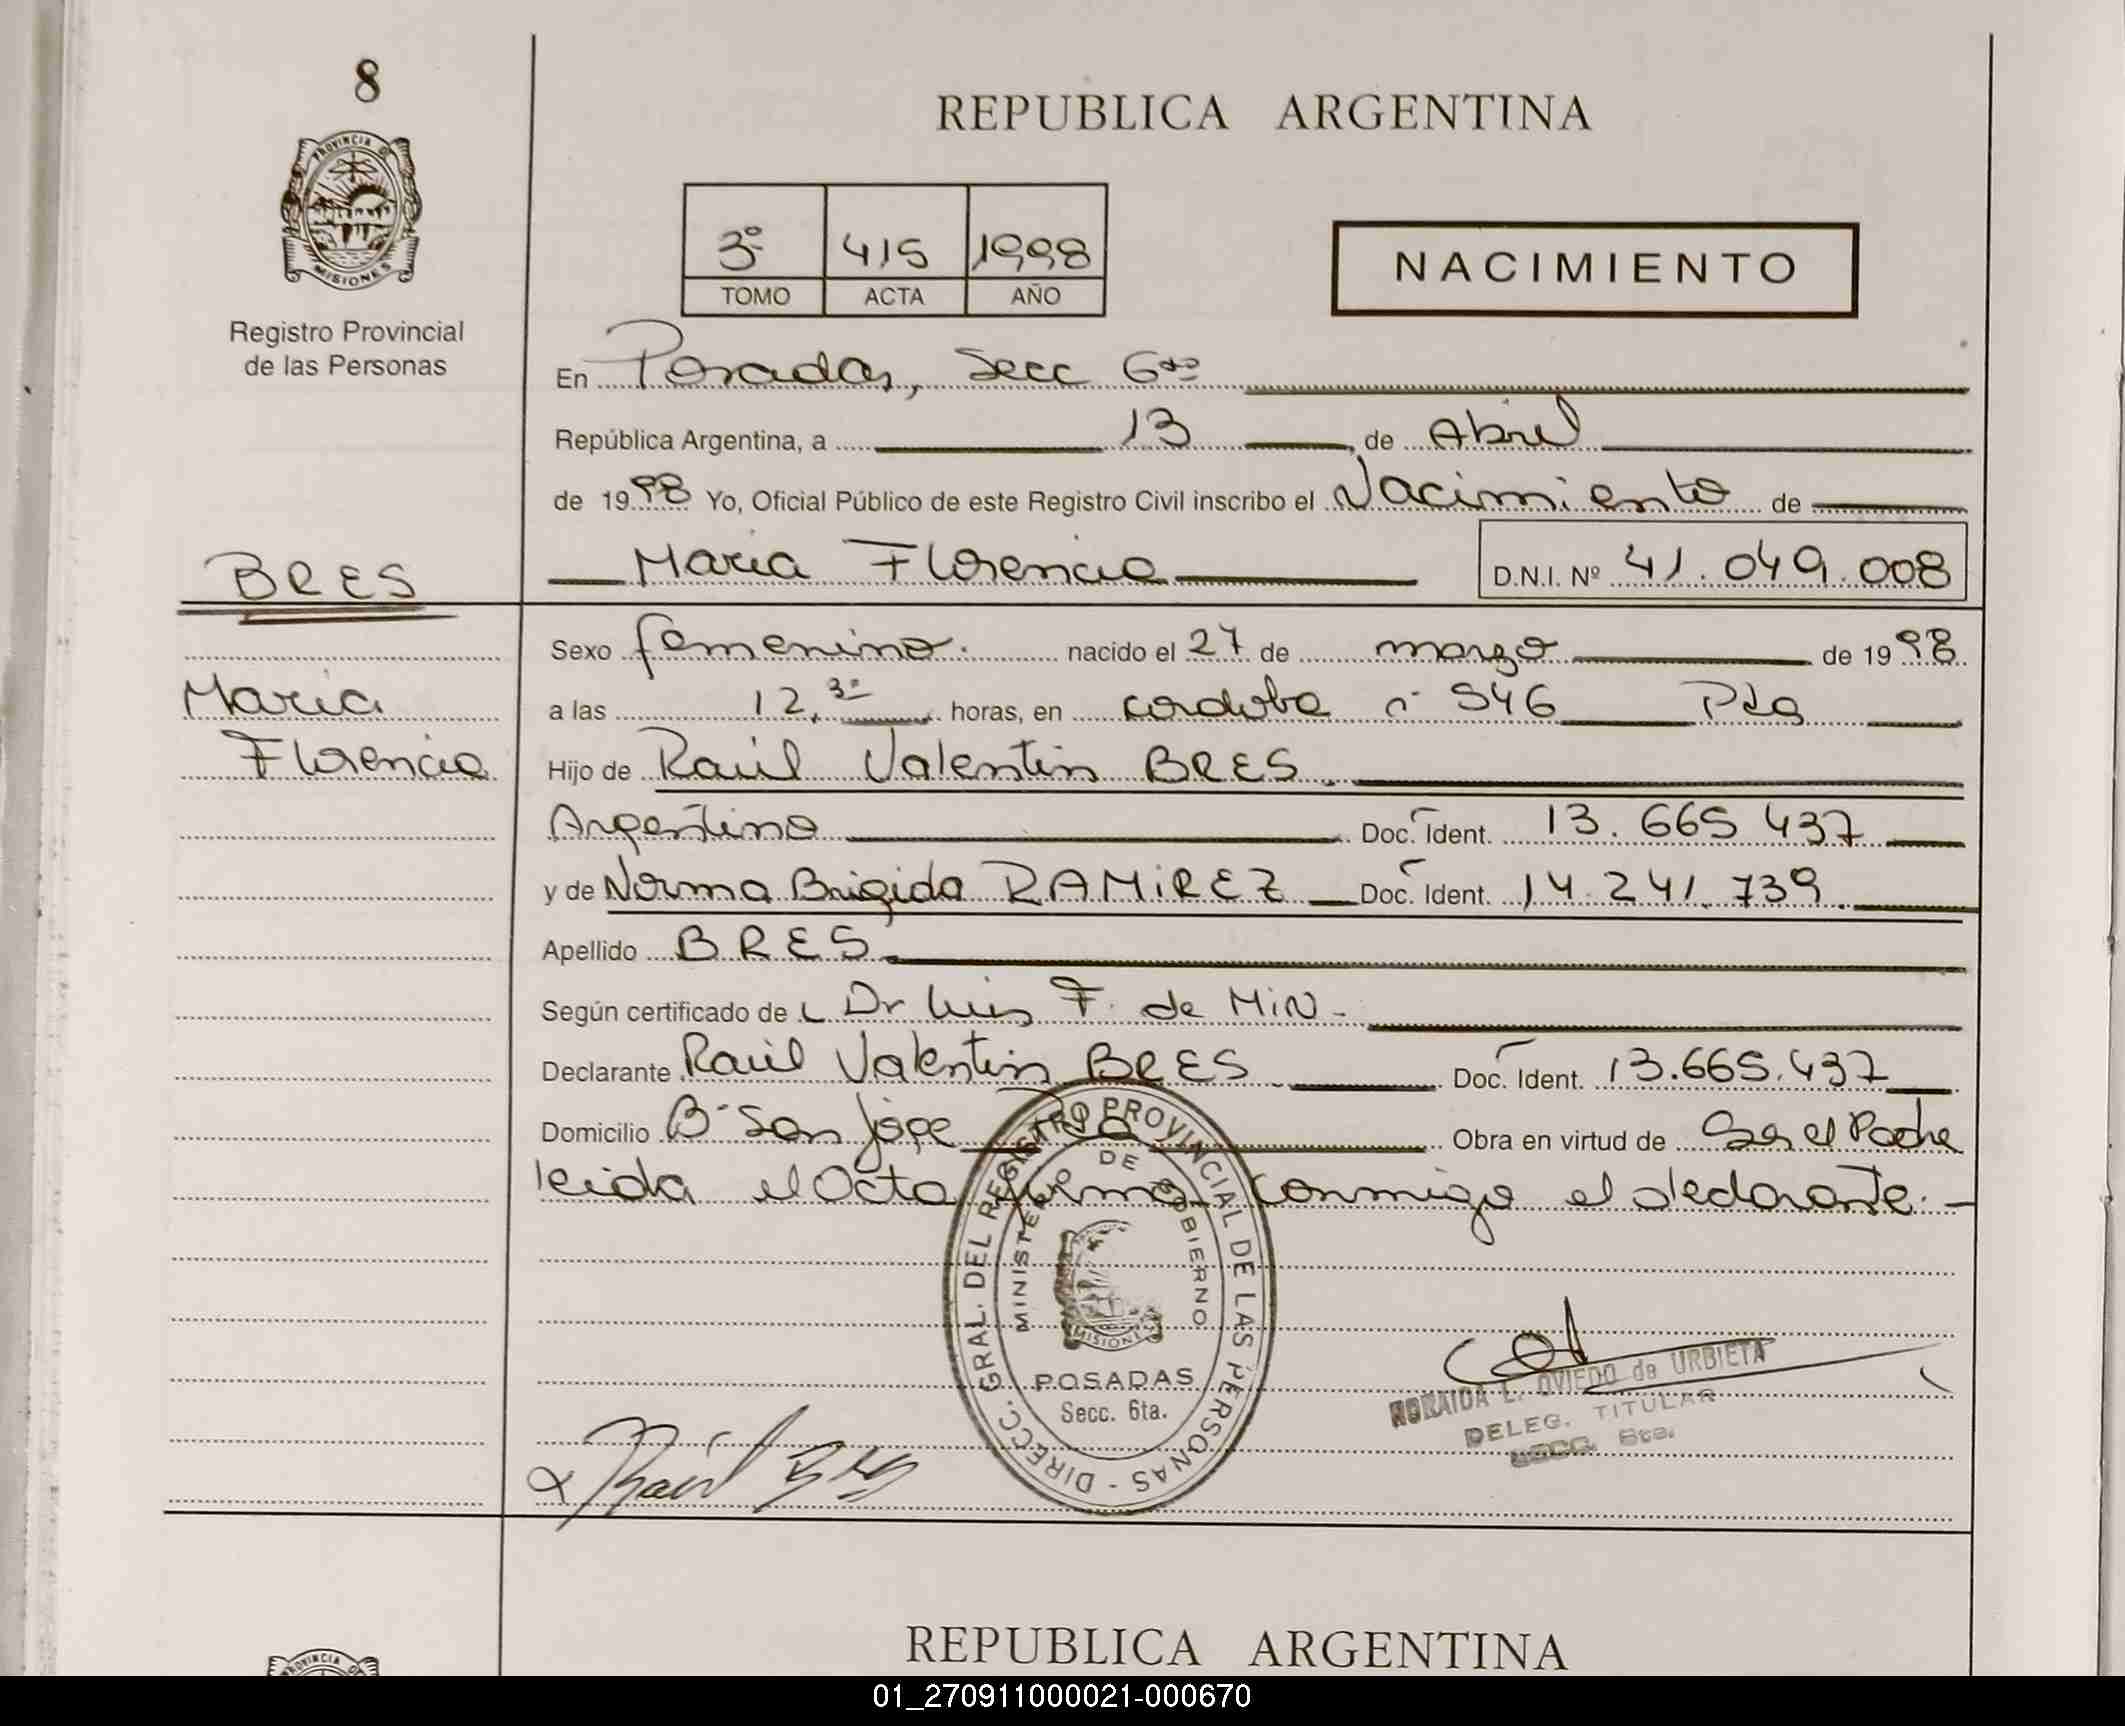 8
PROVINCIA DE
MISIONES
Registro Provincial
de las Personas
REPUBLICA ARGENTINA
3º 415 1998
TOMO ACTA AÑO
NACIMIENTO
En Posadas, Secc 6ta
República Argentina, a 13 de Abril
de 1998 Yo, Oficial Público de este Registro Civil inscribo el Nacimiento de
Maria Florencia D.N.I. Nº 41.049.008
BRES
Maria
Florencia
Sexo femenino. nacido el 27 de marzo de 1998
a las 12,30 horas, en cordoba nº 546 Pdas
Hijo de Raúl Valentin BRES
Argentino Doc. Ident. 13.665.437
y de Norma Brigida RAMIREZ Doc. Ident. 14.241.739
Apellido BRES
Según certificado de Dr Luis F. de MiN -
Declarante Raúl Valentin BRES Doc. Ident. 13.665.437
Domicilio Bº San Jose Obra en virtud de Ser el Padre
leida el Acta firma conmigo el declarante. -
DIRECC. GRAL. DEL REGISTRO PROVINCIAL DE LAS PERSONAS -
MINISTERIO DE GOBIERNO
MISIONES
POSADAS
Secc. 6ta.
NORAIDA L. OVIEDO de URBIETA
DELEG. TITULAR
SECC. 6ta.
Raúl Bres
PROVINCIA DE
REPUBLICA ARGENTINA
01_270911000021-000670